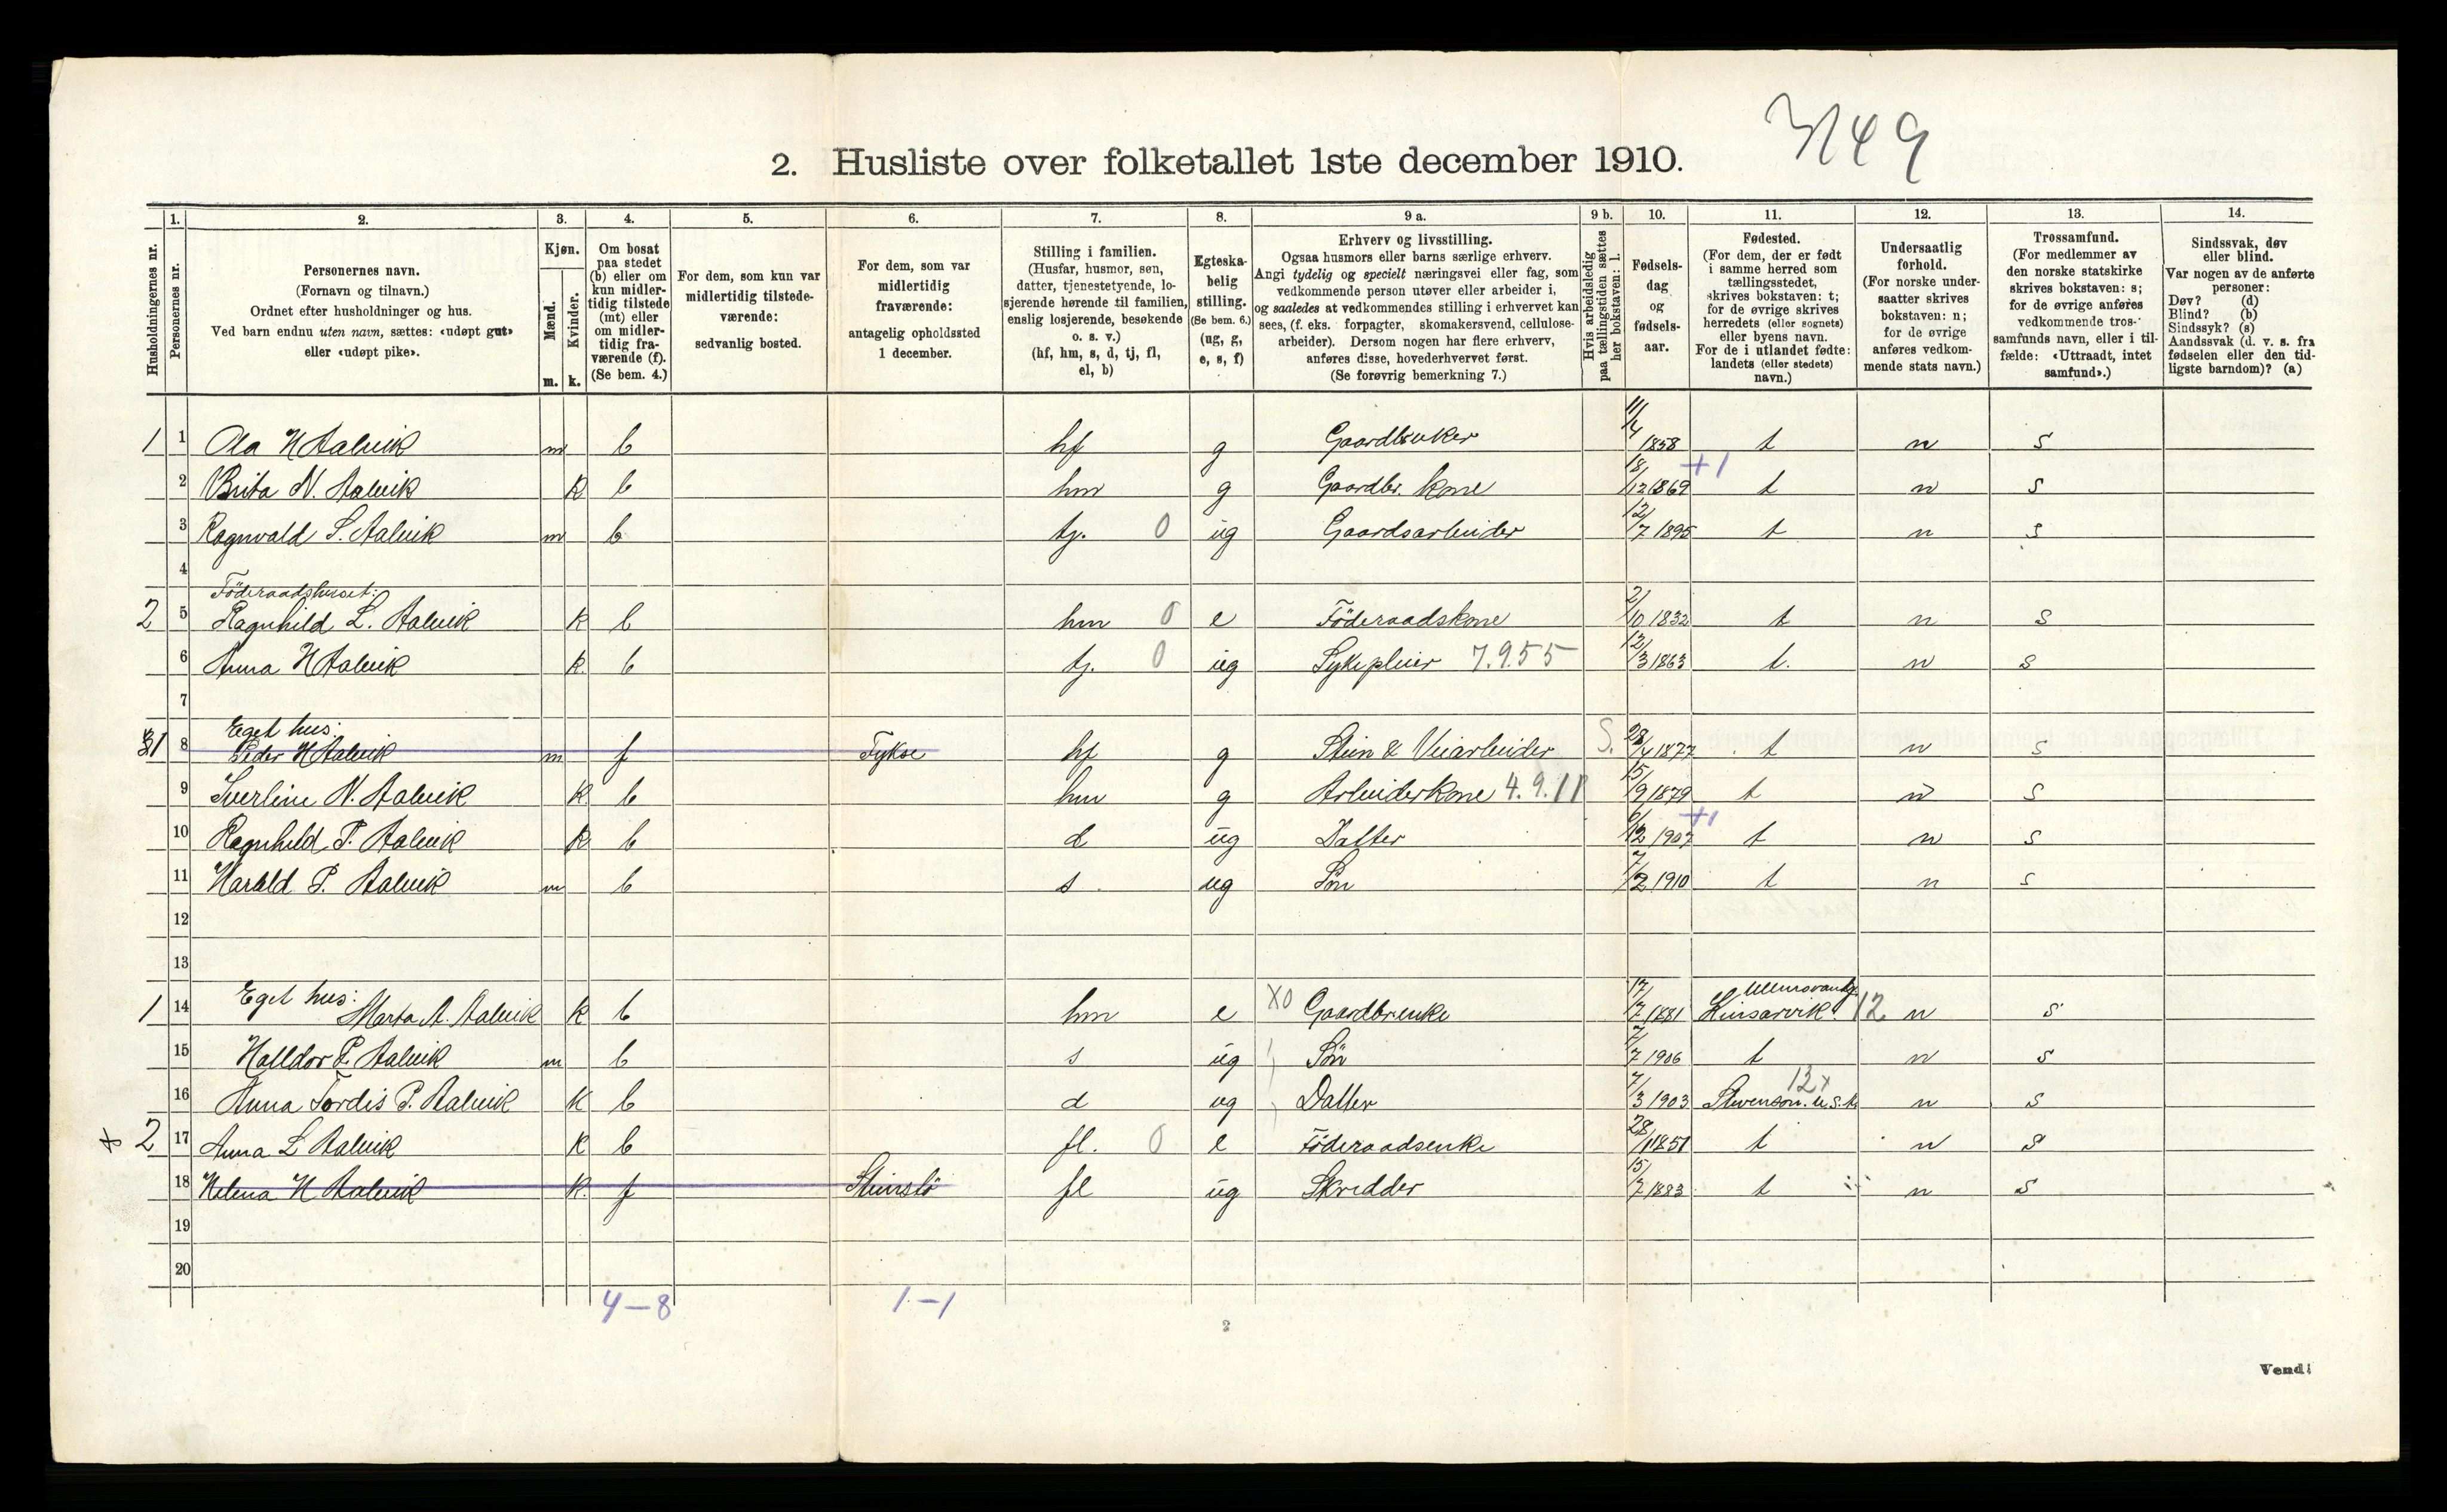 3149
2. Husliste over folketallet 1ste december 1910.
Husholdningernes nr.
1.
Personernes nr.
2.
Personernes navn.
(Fornavn og tilnavn.)
Ordnet efter husholdninger og hus.
Ved barn endnu uten navn, sættes: «udøpt gut»
eller «udøpt pike».
3.
Kjøn.
Mænd.
Kvinder.
m. k.
4.
Om bosat
paa stedet
(b) eller om
kun midler-
tidig tilstede
(mt) eller
om midler-
tidig fra-
værende (f).
(Se bem. 4.)
5.
For dem, som kun var
midlertidig tilstede-
værende:
sedvanlig bosted.
6.
For dem, som var
midlertidig
fraværende:
antagelig opholdssted
1 december.
7.
Stilling i familien.
(Husfar, husmor, søn,
datter, tjenestetyende, lo-
sjerende hørende til familien,
enslig losjerende, besøkende
o. s. v.)
(hf, hm, s, d, tj, fl,
el, b)
8.
Egteska-
belig
stilling.
(Se bem. 6.)
(ug, g,
e, s, f)
9 a.
Erhverv og livsstilling.
Ogsaa husmors eller barns særlige erhverv.
Angi tydelig og specielt næringsvei eller fag, som
vedkommende person utøver eller arbeider i,
og saaledes at vedkommendes stilling i erhvervet kan
sees, (f. eks. forpagter, skomakersvend, cellulose-
arbeider). Dersom nogen har flere erhverv,
anføres disse, hovederhvervet først.
(Se forøvrig bemerkning 7.)
9 b.
Hvis arbeidsledig
paa tællingstiden sættes
her bokstaven: l.
10.
Fødsels-
dag
og
fødsels-
aar.
11.
Fødested.
(For dem, der er født
i samme herred som
tællingsstedet,
skrives bokstaven: t;
for de øvrige skrives
herredets (eller sognets)
eller byens navn.
For de i utlandet fødte:
landets (eller stedets)
navn.)
12.
Undersaatlig
forhold.
(For norske under-
saatter skrives
bokstaven: n;
for de øvrige
anføres vedkom-
mende stats navn.)
13.
Trossamfund.
(For medlemmer av
den norske statskirke
skrives bokstaven: s;
for de øvrige anføres
vedkommende tros-
samfunds navn, eller i til-
fælde: «Uttraadt, intet
samfund».)
14.
Sindssvak, døv
eller blind.
Var nogen av de anførte
personer:
Døv? (d)
Blind? (b)
Sindssyk? (s)
Aandssvak (d. v. s. fra
fødselen eller den tid-
ligste barndom)? (a)
1 1 Ola H Aalvik m b hf g Gaardbruker 11/4 1858 t n s
2 Brita N. Aalvik k b hm g Gaardbr. kone 18/12 1869 +1 t n s
3 Ragnvald S. Aalvik m b tj. 0 ug Gaardsarbeider 12/7 1895 t n s
4
Föderaadshuset:
2 5 Ragnhild L. Aalvik k b hm 0 e Föderaadskone 2/10 1832 t n s
6 Anna H Aalvik k. b tj. 0 ug Sykepleier 7.9.55 12/3 1863 t. n s
7
Eget hus:
1 8 Peder H Aalvik m f Fykse hf g Stein & Veiarbeider S. 28/4 1877 t n s
9 Sverline N. Aalvik k b hm g Arbeiderkone 4.9.11 15/9 1879 t n s
10 Ragnhild P. Aalvik k b d ug Datter 6/12 1907 +1 t n s
11 Harald P. Aalvik m b s ug Sön 7/2 1910 t n s
12
13
Eget hus:
1 14 Marta A. Aalvik k b hm e X0 Gaardbrenke 17/7 1881 Kinsarvik. Ullensvang 12 n s
15 Halldor P. Aalvik m b s ug Sön 7/7 1906 t n s
16 Anna Tordis P. Aalvik k b d ug Datter 7/3 1903 12x n s
x 2 17 Anna L Aalvik k b fl. 0 e Föderaadsenke 28/11 1851 t n s
18 Helena H Aalvik k. f Steinstö fl ug Skredder 15/7 1883 t n s
19
20
4—8 1—1
2
Vend!